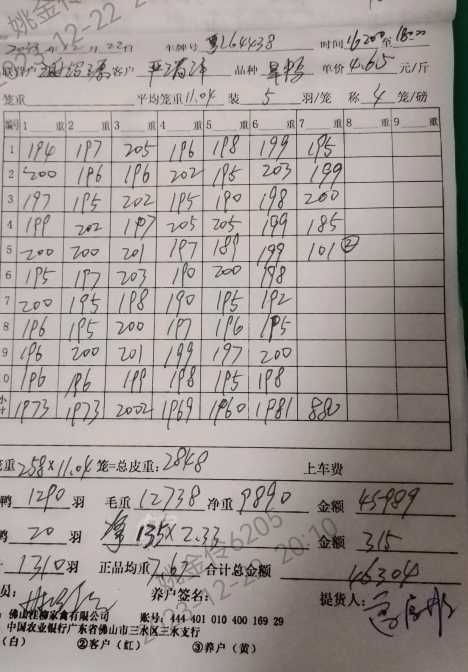 2023-12-22 车牌号 粤264438 时间 16200 至 18:00
客户 品种 单价 4.65 元/斤
笼重 平均笼重 11.04 装 5 羽/笼 称 4 笼/磅
编号 1 重 2 重 3 重 4 重 5 重 6 重 7 重 8 重 9 重
1 194 197 205 196 198 199 195
2 200 196 196 202 195 203 199
3 197 195 202 195 190 198 200
4 199 202 197 205 205 199 185
5 200 200 201 197 189 199 101 ②
6 195 197 203 190 200 198
7 200 195 198 190 195 192
8 196 195 200 197 196 195
9 196 200 201 199 197 200
0 196 196 199 198 195 198
小计 1973 1973 2002 1969 1960 1981 880
笼重 258×11.04 笼=总皮重: 2848 上车费
鸭 1290 羽 毛重 12738 净重 9890 金额 45989
鸭 20 羽 135×2.33 金额 315
1310 羽 正品均重 7.67 合计总金额 46304
员: 养户签名: 提货人:
佛山桂柳家禽有限公司 账号: 444 401 010 400 169 29
中国农业银行广东省佛山市三水区三水支行
(白) ②客户(红) ③养户(黄)
姚金传6205
2023-12-22 20:10